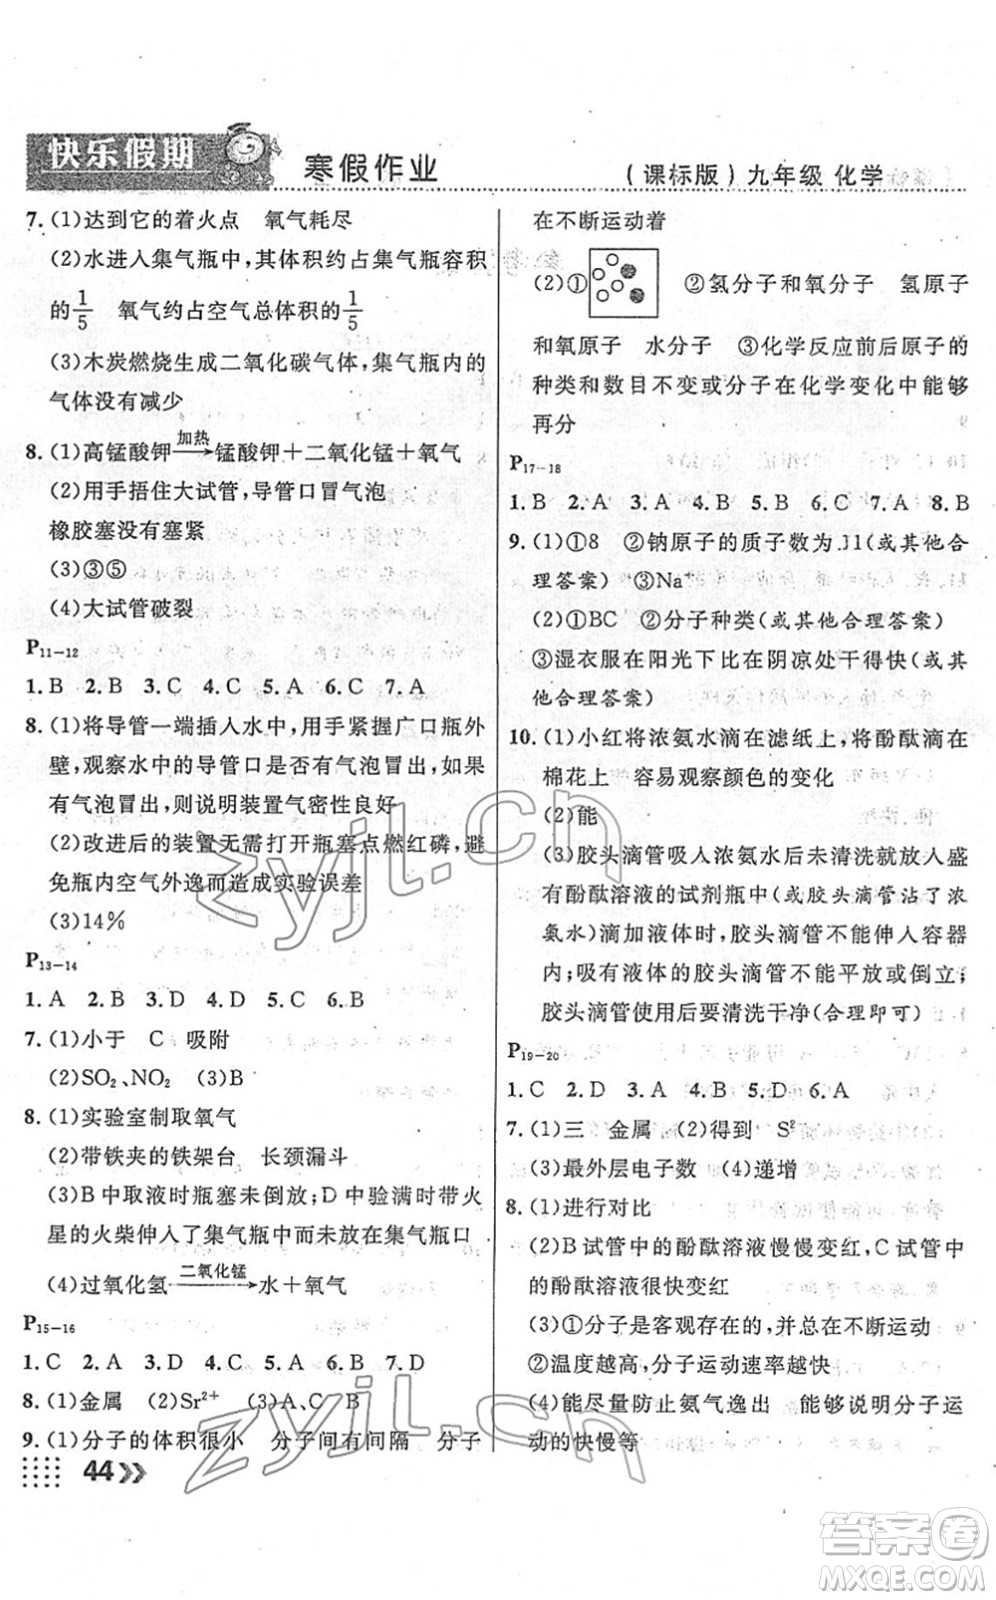 快乐假期
寒假作业
(课标版)九年级 化学
7.(1)达到它的着火点 氧气耗尽
(2)水进入集气瓶中,其体积约占集气瓶容积
的1/5 氧气约占空气总体积的1/5
(3)木炭燃烧生成二氧化碳气体,集气瓶内的
气体没有减少
8.(1)高锰酸钾 加热→ 锰酸钾+二氧化锰+氧气
(2)用手捂住大试管,导管口冒气泡
橡胶塞没有塞紧
(3)③⑤
(4)大试管破裂
P11-12
1.B 2.B 3.C 4.C 5.A 6.C 7.A
8.(1)将导管一端插入水中,用手紧握广口瓶外
壁,观察水中的导管口是否有气泡冒出,如果
有气泡冒出,则说明装置气密性良好
(2)改进后的装置无需打开瓶塞点燃红磷,避
免瓶内空气外逸而造成实验误差
(3)14%
P13-14
1.A 2.B 3.D 4.D 5.D 6.C
7.(1)小于 C 吸附
(2)SO₂、NO₂ (3)B
8.(1)实验室制取氧气
(2)带铁夹的铁架台 长颈漏斗
(3)B中取液时瓶塞未倒放;D中验满时带火
星的火柴伸入了集气瓶中而未放在集气瓶口
(4)过氧化氢 二氧化锰→ 水+氧气
P15-16
1.C 2.A 3.D 4.C 5.B 6.B 7.D
8.(1)金属 (2)Sr²⁺ (3)A、C B
9.(1)分子的体积很小 分子间有间隔 分子
44
在不断运动着
(2)① ②氢分子和氧分子 氢原子
和氧原子 水分子 ③化学反应前后原子的
种类和数目不变或分子在化学变化中能够
再分
P17-18
1.B 2.A 3.A 4.A 5.B 6.C 7.A 8.B
9.(1)①8 ②钠原子的质子数为11(或其他合
理答案) ③Na⁺
(2)①BC ②分子种类(或其他合理答案)
③湿衣服在阳光下比在阴凉处干得快(或其
他合理答案)
10.(1)小红将浓氨水滴在滤纸上,将酚酞滴在
棉花上 容易观察颜色的变化
(2)能
(3)胶头滴管吸入浓氨水后未清洗就放入盛
有酚酞溶液的试剂瓶中(或胶头滴管沾了浓
氨水) 滴加液体时,胶头滴管不能伸入容器
内;吸有液体的胶头滴管不能平放或倒立;
胶头滴管使用后要清洗干净(合理即可)
P19-20
1.C 2.D 3.A 4.D 5.D 6.A
7.(1)三 金属 (2)得到 S²⁻
(3)最外层电子数 (4)递增
8.(1)进行对比
(2)B试管中的酚酞溶液慢慢变红,C试管中
的酚酞溶液很快变红
(3)①分子是客观存在的,并总在不断运动
②温度越高,分子运动速率越快
(4)能尽量防止氨气逸出 能够说明分子运
动的快慢等
zyjl.cn
zyjl.cn
答案卷
MXQE.COM